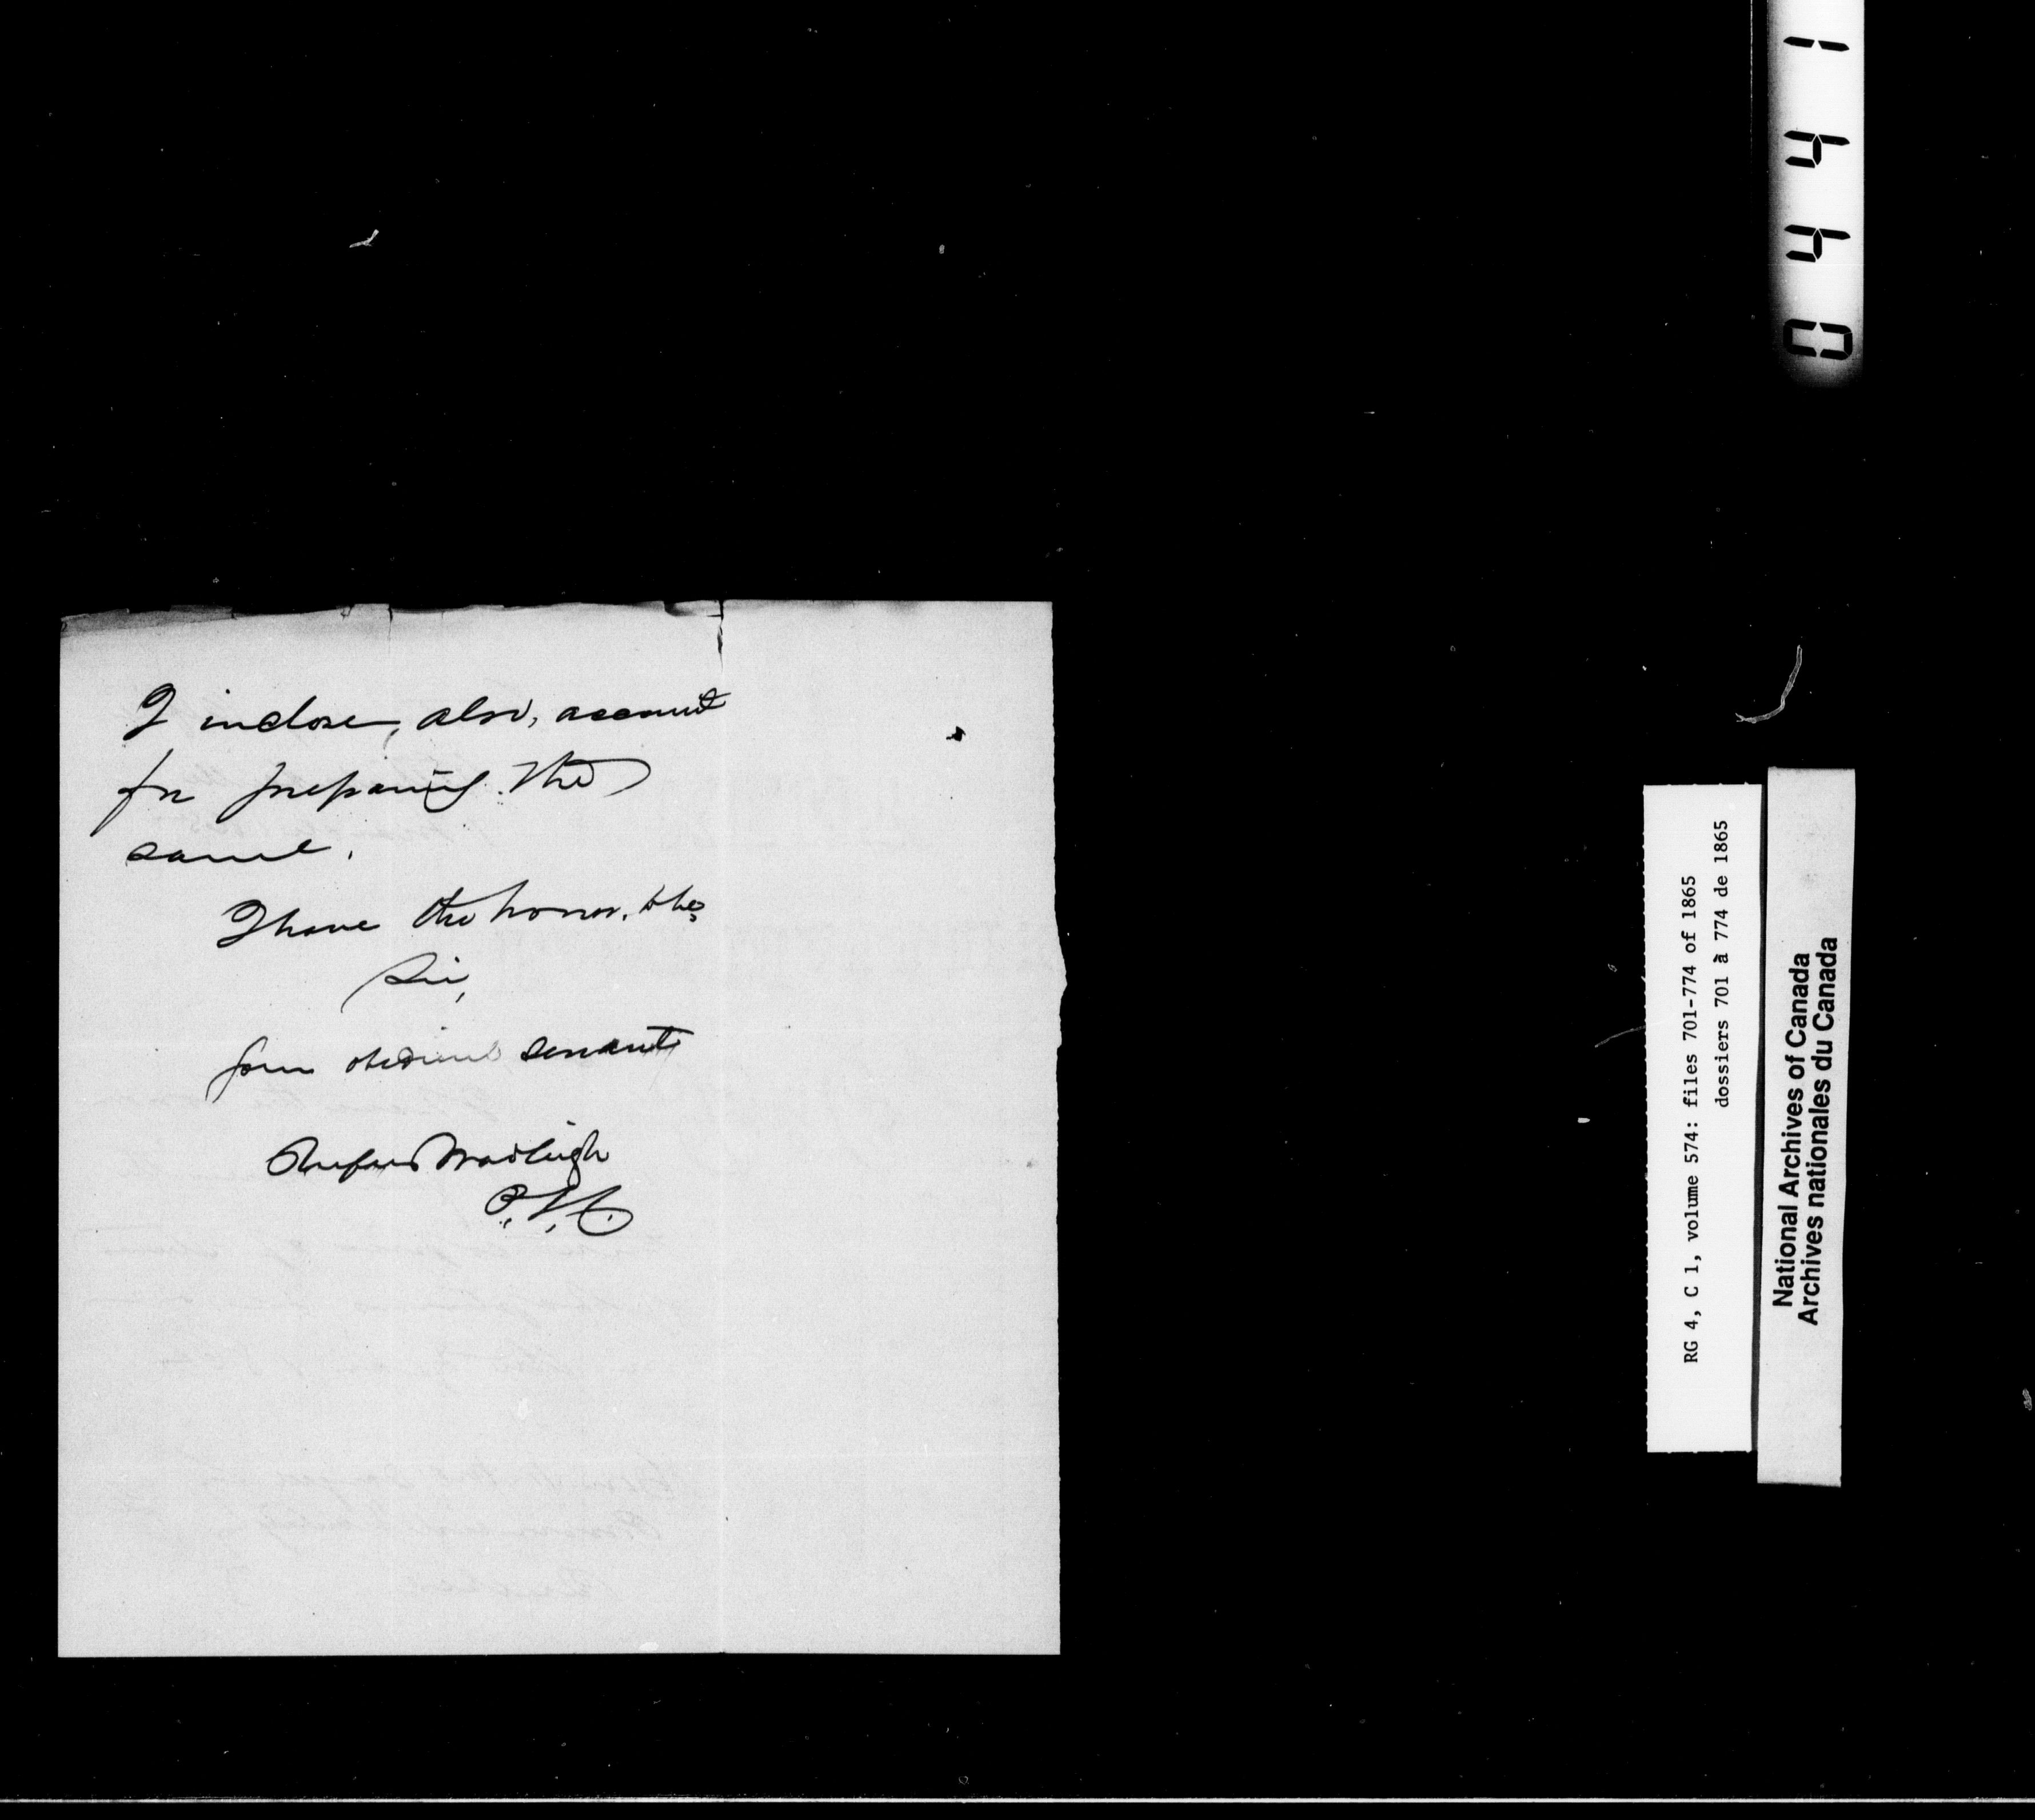 I inclose, also, account
for preparing the
same.
I have the honor, to be,
Sir,
Your obedient servant
Rufus Wadleigh
0441
RG 4, C 1, volume 574: files 701-774 of 1865
dossiers 701 à 774 de 1865
National Archives of Canada
Archives nationales du Canada